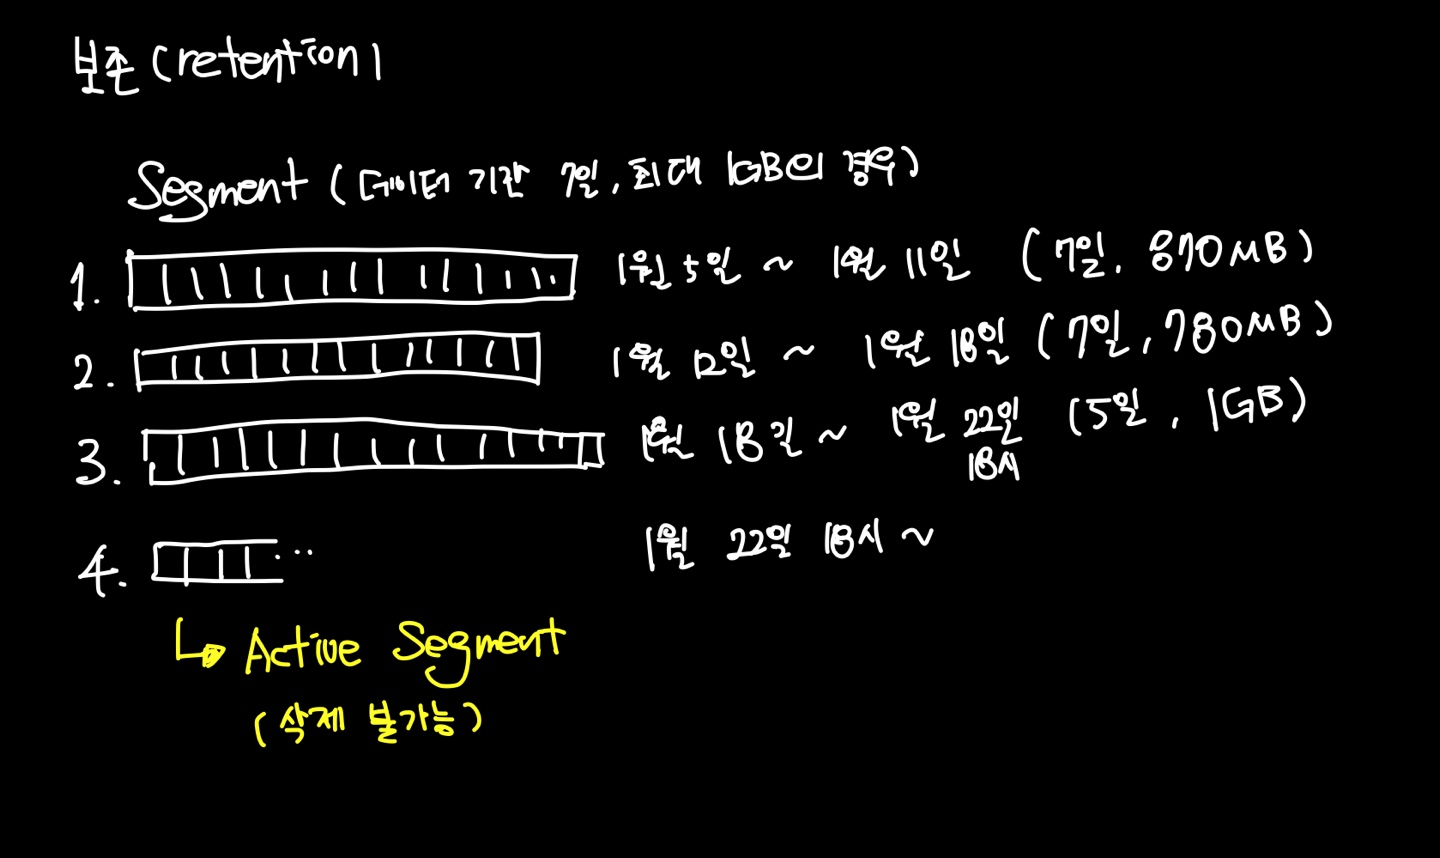 보존 (retention)
Segment (데이터 기간 7일, 최대 1GB의 경우)
1. 1월 5일 ~ 1월 11일 (7일, 870MB)
2. 1월 12일 ~ 1월 18일 (7일, 780MB)
3. 1월 18일 ~ 1월 22일 18시 (5일, 1GB)
4. ... 1월 22일 18시 ~
Active Segment
(삭제 불가능)